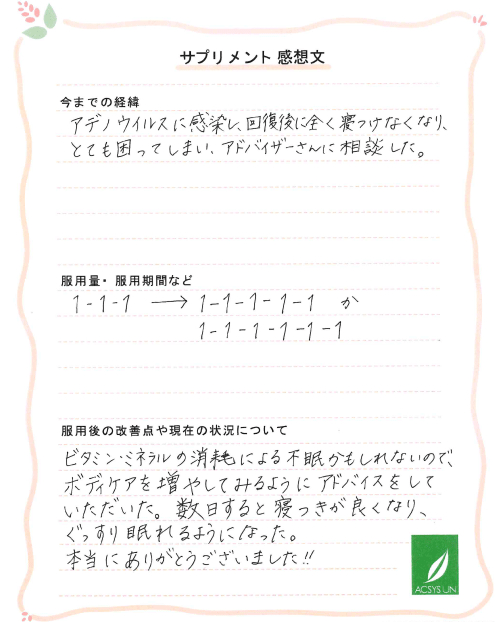 サプリメント 感想文
今までの経緯
アデノウイルスに感染し、回復後に全く寝つけなくなり、
とても困ってしまい、アドバイザーさんに相談した。
服用量・服用期間など
1-1-1 → 1-1-1-1-1 か
1-1-1-1-1-1
服用後の改善点や現在の状況について
ビタミン・ミネラルの消耗による不眠かもしれないので、
ボディケアを増やしてみるようにアドバイスをして
いただいた。数日すると寝つきが良くなり、
ぐっすり眠れるようになった。
本当にありがとうございました!!
ACSYSUN